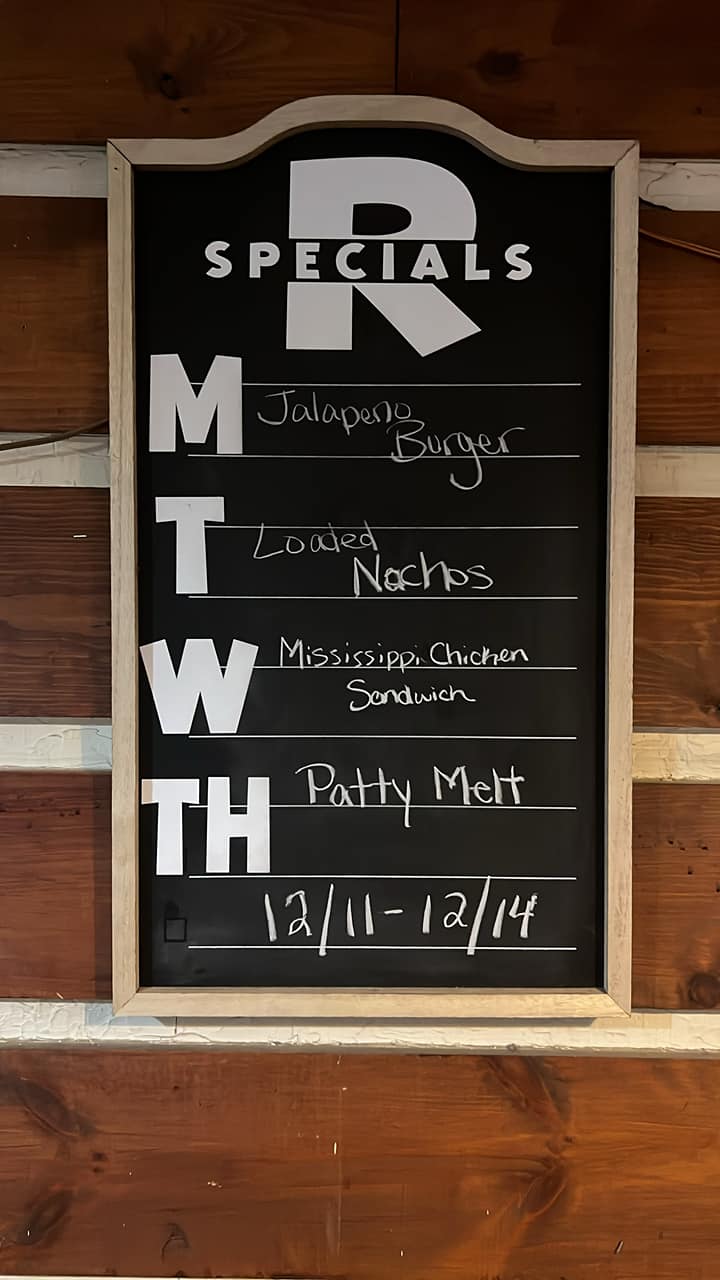 R
SPECIALS
M Jalapeno
Burger
T Loaded
Nachos
W Mississippi Chicken
Sandwich
TH Patty Melt
12/11-12/14